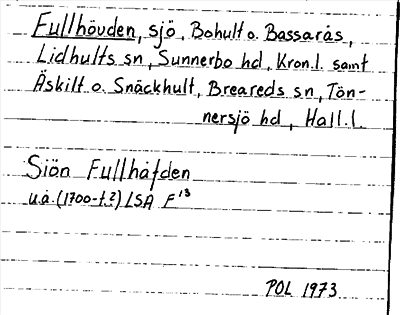 Fullhövden, sjö, Bohult o. Bassarås,
Lidhults sn, Sunnerbo hd, Kron.l. samt
Äskilt o. Snäckhult, Breareds sn, Tön-
nersjö hd, Hall.l.
Siön Fullhåfden
u.å. (1700-t.?) LSA F¹³
POL 1973